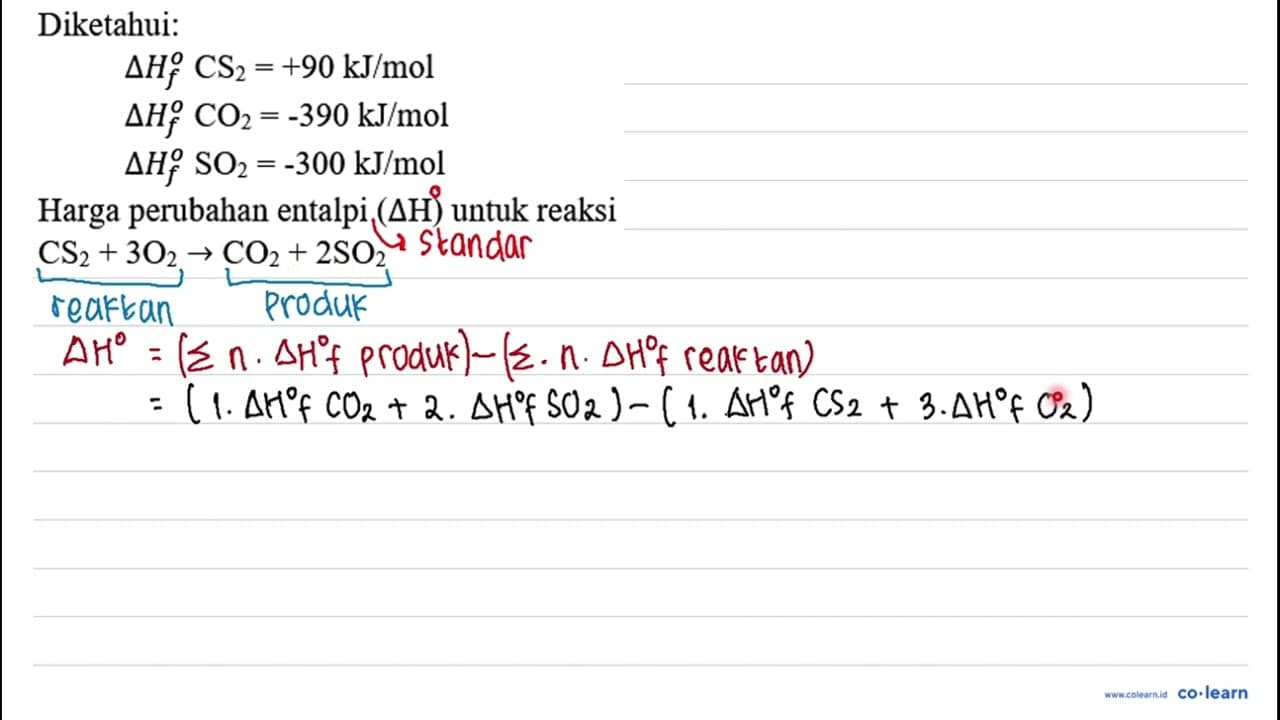 Diketahui:
ΔH°f CS₂ = +90 kJ/mol
ΔH°f CO₂ = -390 kJ/mol
ΔH°f SO₂ = -300 kJ/mol
Harga perubahan entalpi (ΔH°) untuk reaksi
CS₂ + 3O₂ → CO₂ + 2SO₂ standar
reaktan produk
ΔH° = (Σ n. ΔH°f produk) - (Σ. n. ΔH°f reaktan)
= (1. ΔH°f CO₂ + 2. ΔH°f SO₂) - (1. ΔH°f CS₂ + 3. ΔH°f O₂)
www.colearn.id co·learn